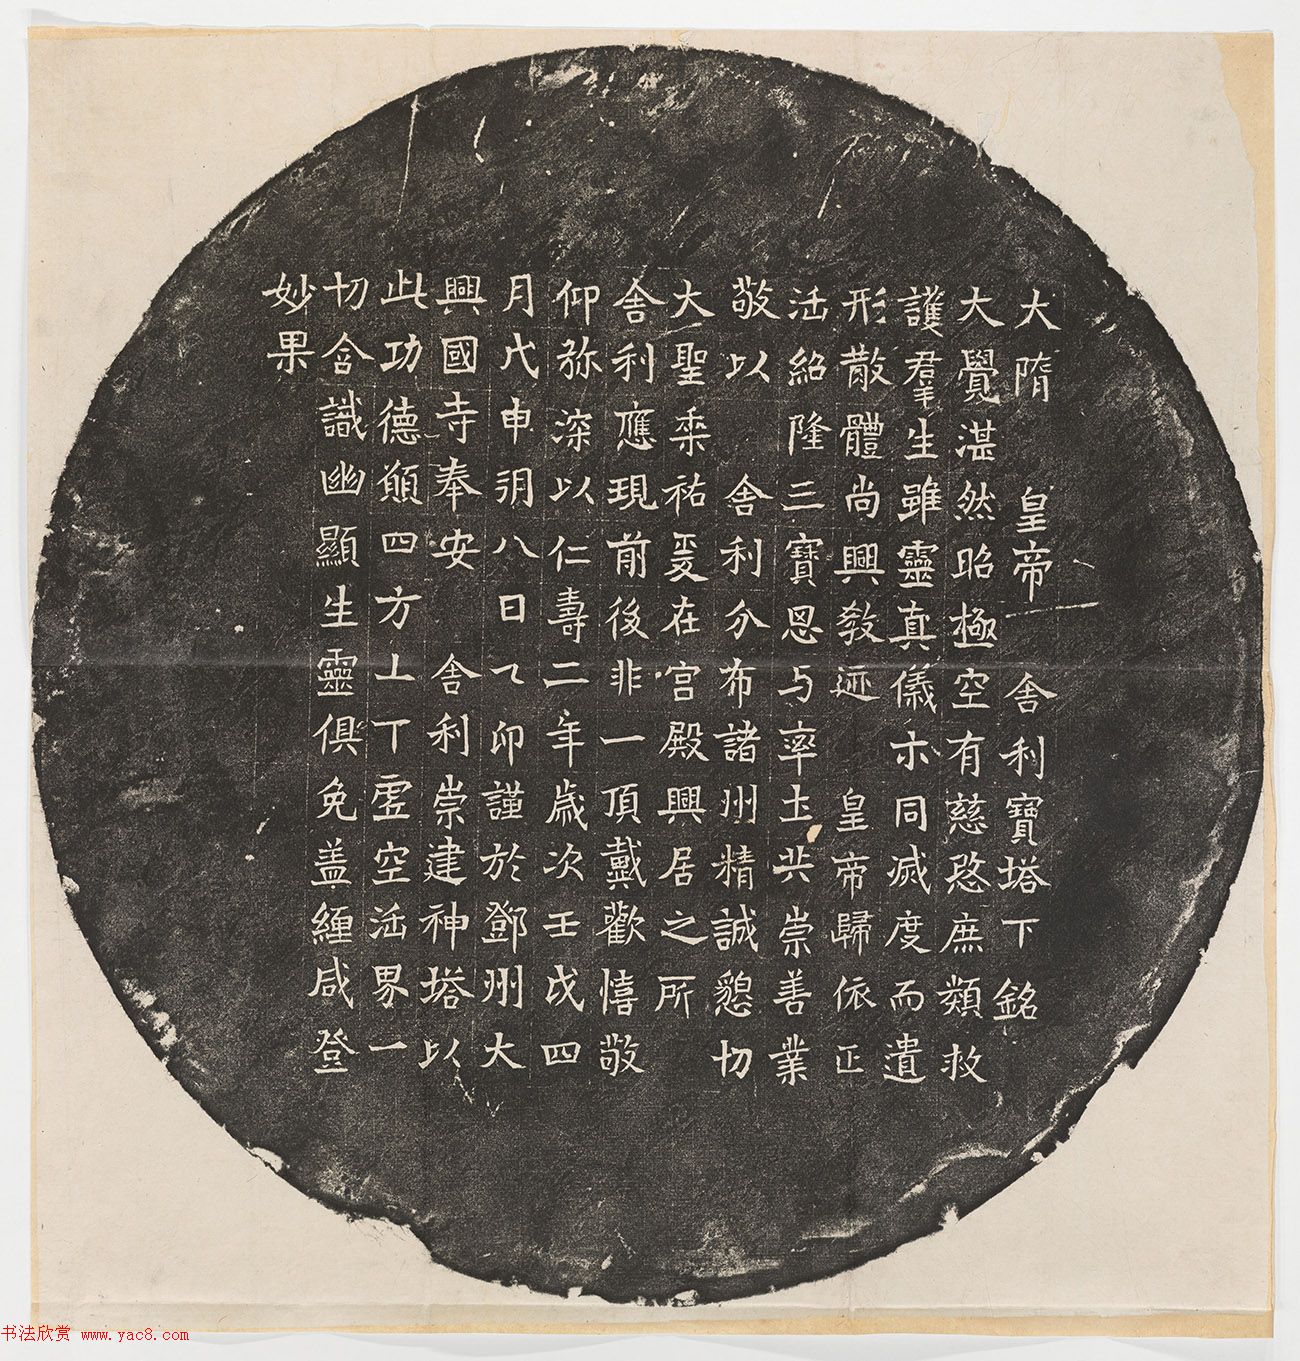 大隋 皇帝 舍利寶塔下銘
大覺湛然昭極空有慈愍庶類救
護羣生雖靈真儀亦同滅度而遺
形散體尚興教迹 皇帝歸依正
法紹隆三寶思与率土共崇善業
敬以 舍利分布諸州精誠懇切
大聖垂祐爰在宮殿興居之所
舍利應現前後非一頂戴歡憘敬
仰弥深以仁壽二年歲次壬戌四
月戊申朔八日乙卯謹於鄧州大
興國寺奉安 舍利崇建神塔以
此功德願四方上下虛空法界一
切含識幽顯生靈俱免盖纏咸登
妙果
书法欣赏 www.yac8.com